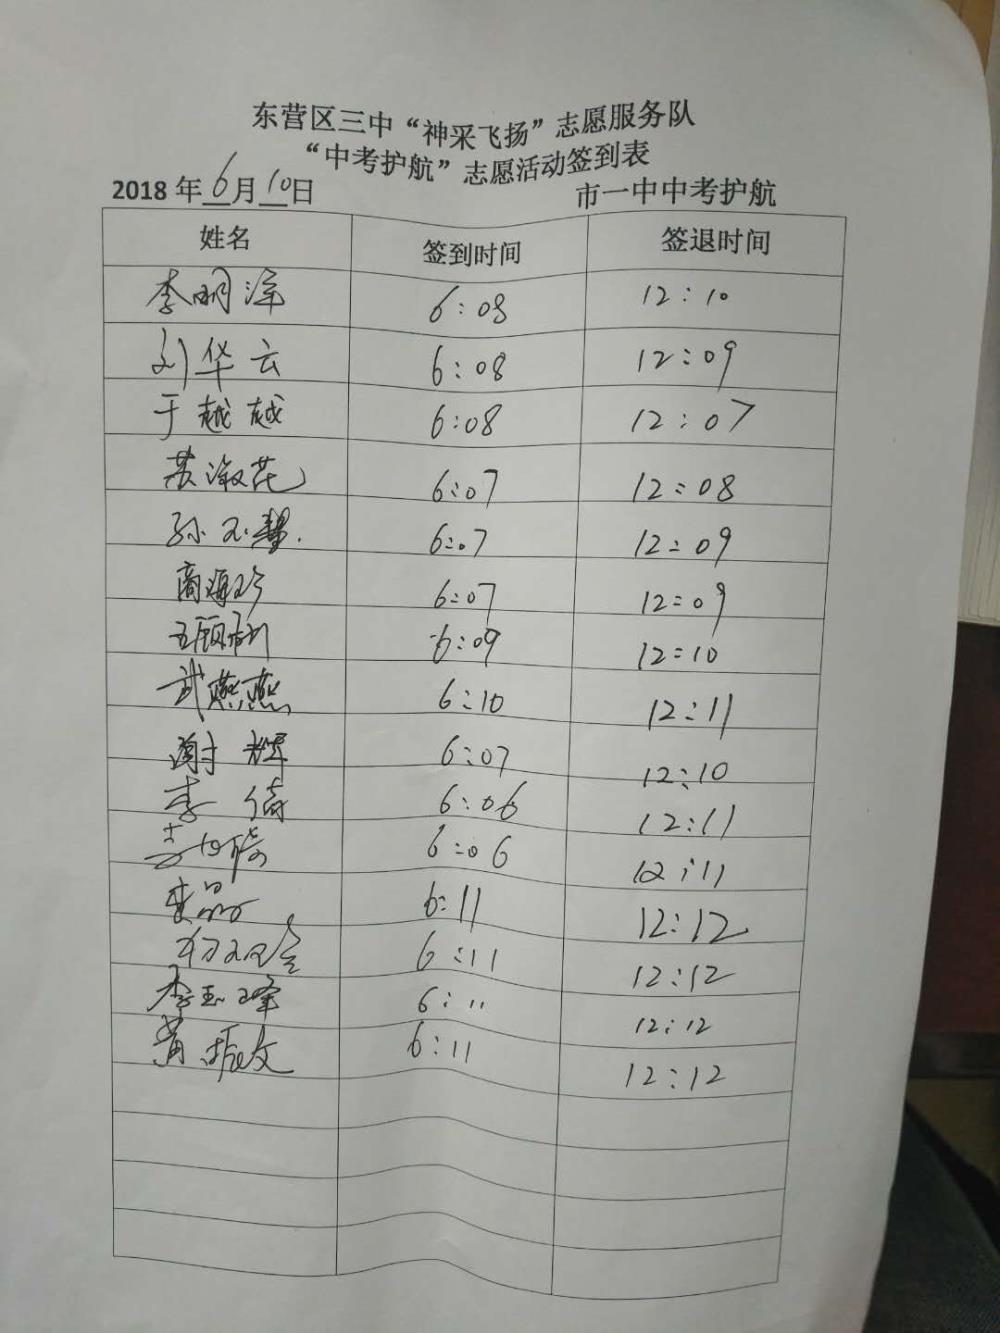 东营区三中“神采飞扬”志愿服务队
“中考护航”志愿活动签到表
2018 年 6 月 10 日 市一中中考护航
姓名 签到时间 签退时间
李明泽 6:08 12:10
刘华云 6:08 12:09
于越越 6:08 12:07
苏淑花 6:07 12:08
孙 6:07 12:09
商海珍 6:07 12:09
王丽 6:09 12:10
武燕燕 6:10 12:11
谢辉 6:07 12:10
李倩 6:06 12:11
6:06 12:11
李晶 6:11 12:12
6:11 12:12
李玉峰 6:11 12:12
黄振文 6:11 12:12